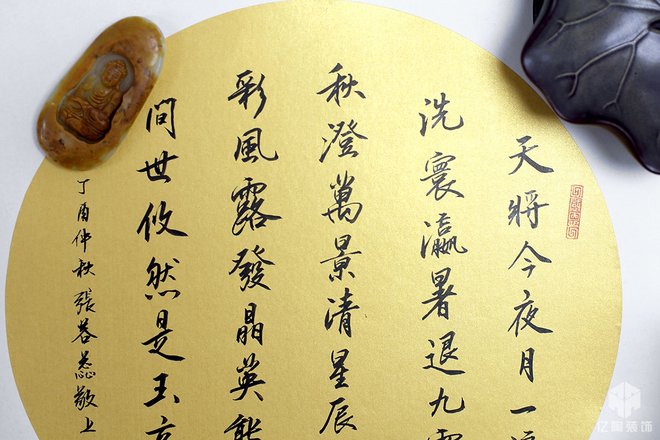 天將今夜月一
洗寰瀛暑退九
秋澄萬景清星辰
彩風露發晶英能
問世攸然是玉京
丁酉仲秋張春蕊敬上
亿陶装饰